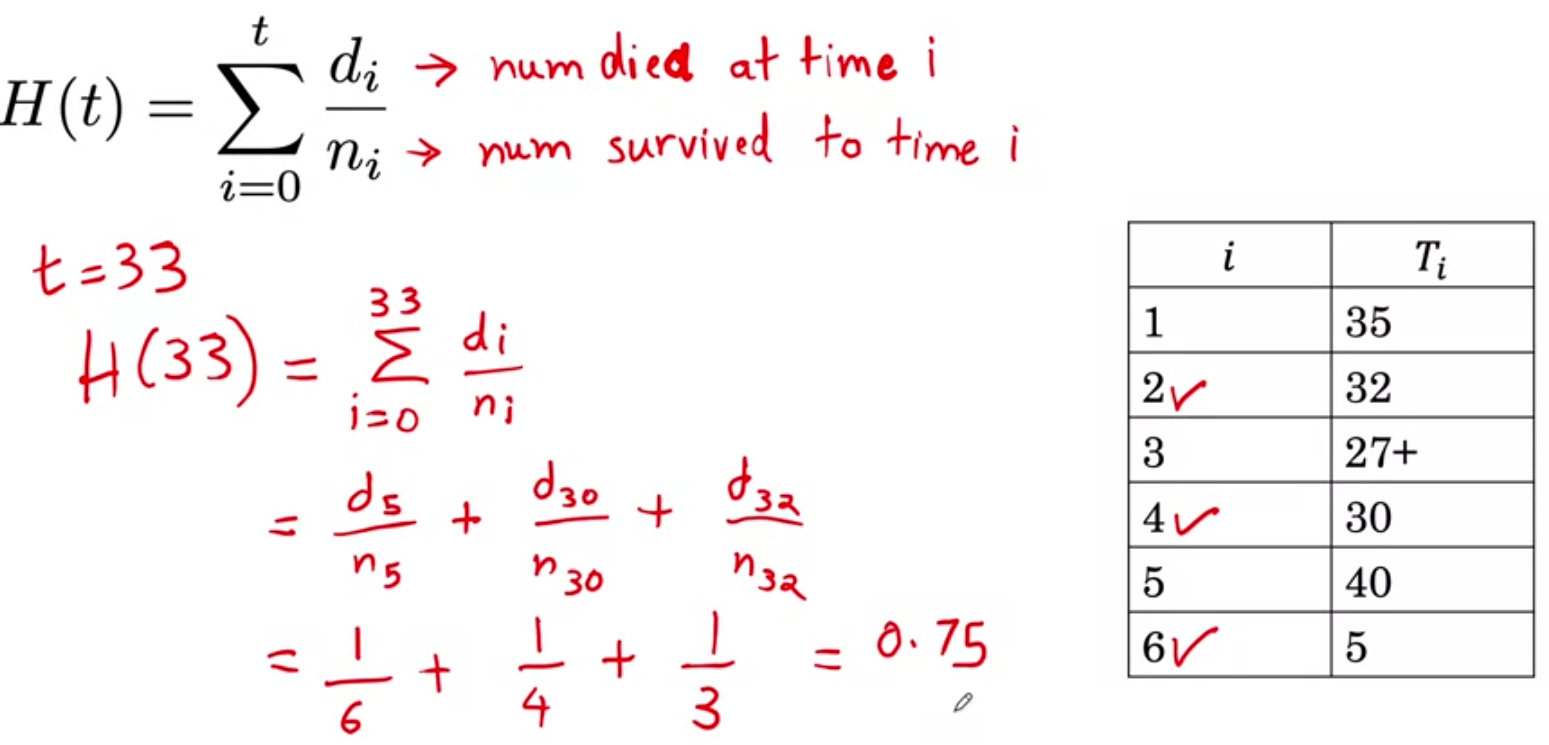 H(t) = \sum_{i=0}^{t} \frac{d_i}{n_i}
→ num died at time i
→ num survived to time i
t=33
H(33) = \sum_{i=0}^{33} \frac{d_i}{n_i}
= \frac{d_5}{n_5} + \frac{d_{30}}{n_{30}} + \frac{d_{32}}{n_{32}}
= \frac{1}{6} + \frac{1}{4} + \frac{1}{3} = 0.75
i T_i
1 35
2✓ 32
3 27+
4✓ 30
5 40
6✓ 5